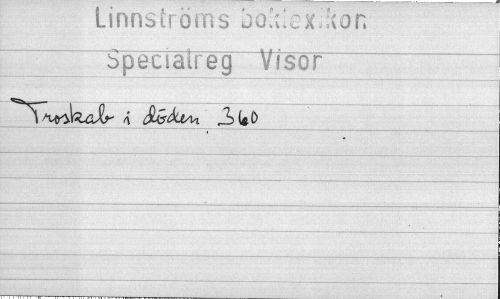 Linnströms boklexikon
Specialreg Visor
Troskab i döden 360